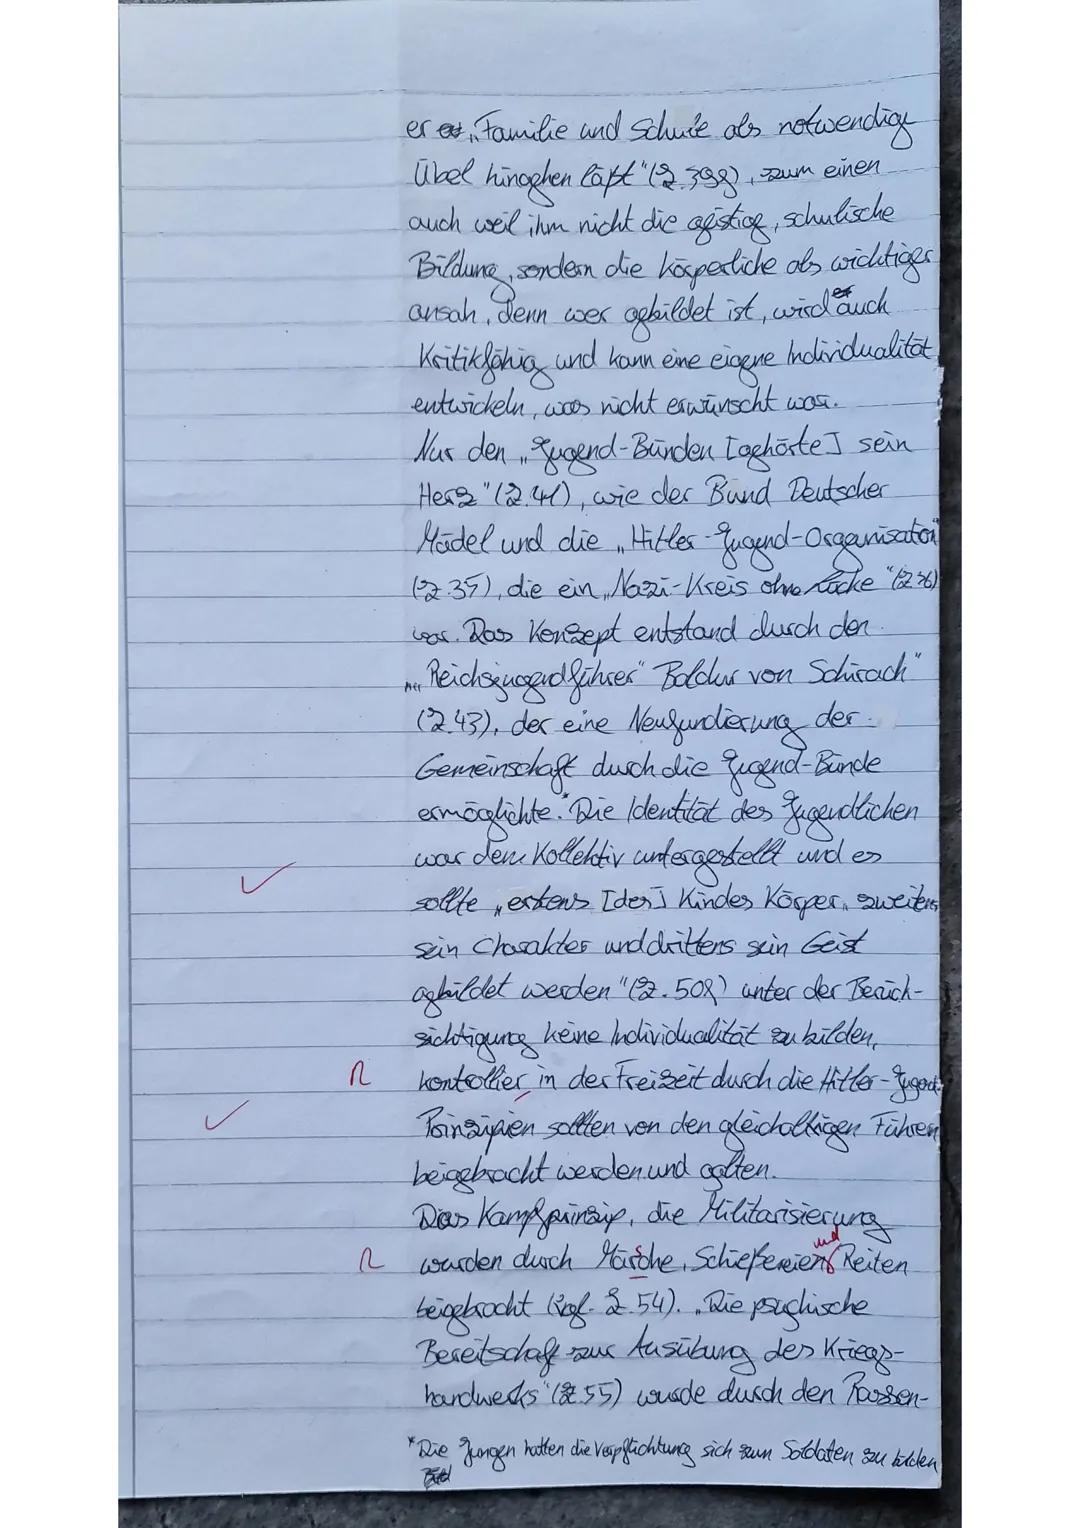 er „Familie und Schule als notwendige
Übel hingehen läßt" (Z.39f), zum einen
auch weil ihm nicht die geistige, schulische
Bildung, sondern die körperliche als wichtiger
ansah, denn wer gebildet ist, wird er auch
Kritikfähig und kann eine eigene Individualität
entwickeln, was nicht erwünscht war.
Nur den „Jugend-Bünden [gehörte] sein
Herz" (Z.41), wie der Bund Deutscher
Mädel und die „Hitler-Jugend-Organisation"
(Z.35), die ein „Nazi-Kreis ohne Lücke" (Z.36)
war. Das Konzept entstand durch den
„Reichsjugendführer" Baldur von Schirach"
(Z.43), der eine Neufundierung der
Gemeinschaft durch die Jugend-Bünde
ermöglichte.* Die Identität des Jugendlichen
war dem Kollektiv untergestellt und es
sollte „erstens [des] Kindes Körper, zweitens
sein Charakter und drittens sein Geist
gebildet werden" (Z.50f) unter der Berück-
sichtigung keine Individualität zu bilden,
R kontrollier in der Freizeit durch die Hitler-Jugend.
Prinzipien sollten von den gleichaltrigen Führern
beigebracht werden und galten.
Das Kampfprinzip, die Militarisierung
R wurden durch Märsche, Schießereien und Reiten
beigebracht (Vgl. Z.54). „Die psychische
Bereitschaft zur Ausübung des Kriegs-
handwerks" (Z.55) wurde durch den Rassen-
*Die Jungen hatten die Verpflichtung sich zum Soldaten zu bilden